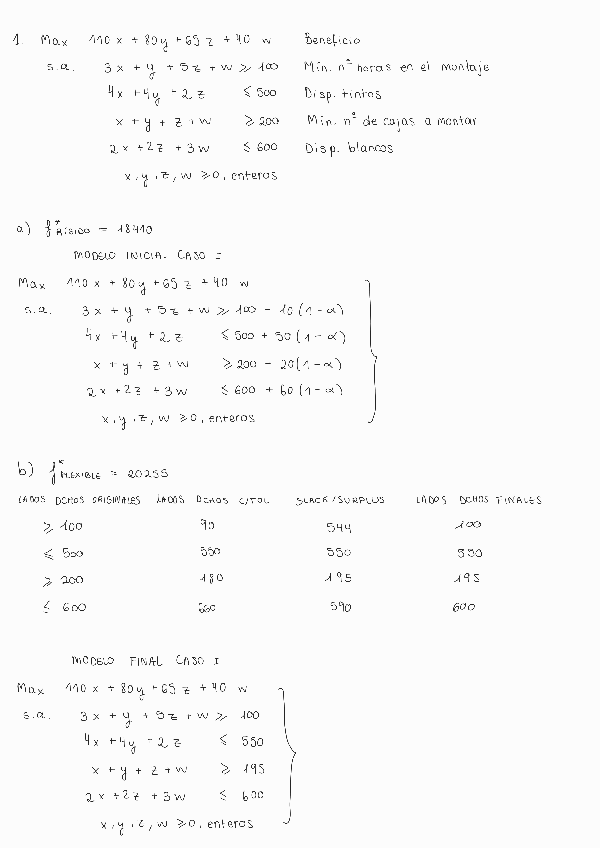 1. Max 110x + 80y + 65z + 40w Beneficio
s.a. 3x + y + 5z + w ≥ 100 Mín. nº horas en el montaje
4x + 4y - 2z ≤ 500 Disp. tintos
x + y + z + w ≥ 200 Mín. nº de cajas a montar
2x + 2z + 3w ≤ 600 Disp. blancos
x, y, z, w ≥ 0, enteros
a) f*RÍGIDO = 18410
MODELO INICIAL CASO I
Max 110x + 80y + 65z + 40w
s.a. 3x + y + 5z + w ≥ 100 - 10(1-α)
4x + 4y + 2z ≤ 500 + 50(1-α)
x + y + z + w ≥ 200 - 20(1-α)
2x + 2z + 3w ≤ 600 + 60(1-α)
x, y, z, w ≥ 0, enteros
b) f*FLEXIBLE = 20255
LADOS DCHOS ORIGINALES LADOS DCHOS C/TOL SLACK/SURPLUS LADOS DCHOS FINALES
≥ 100 90 544 100
≤ 500 550 550 550
≥ 200 180 195 195
≤ 600 660 590 600
MODELO FINAL CASO I
Max 110x + 80y + 65z + 40w
s.a. 3x + y + 5z + w ≥ 100
4x + 4y - 2z ≤ 550
x + y + z + w ≥ 195
2x + 2z + 3w ≤ 600
x, y, z, w ≥ 0, enteros